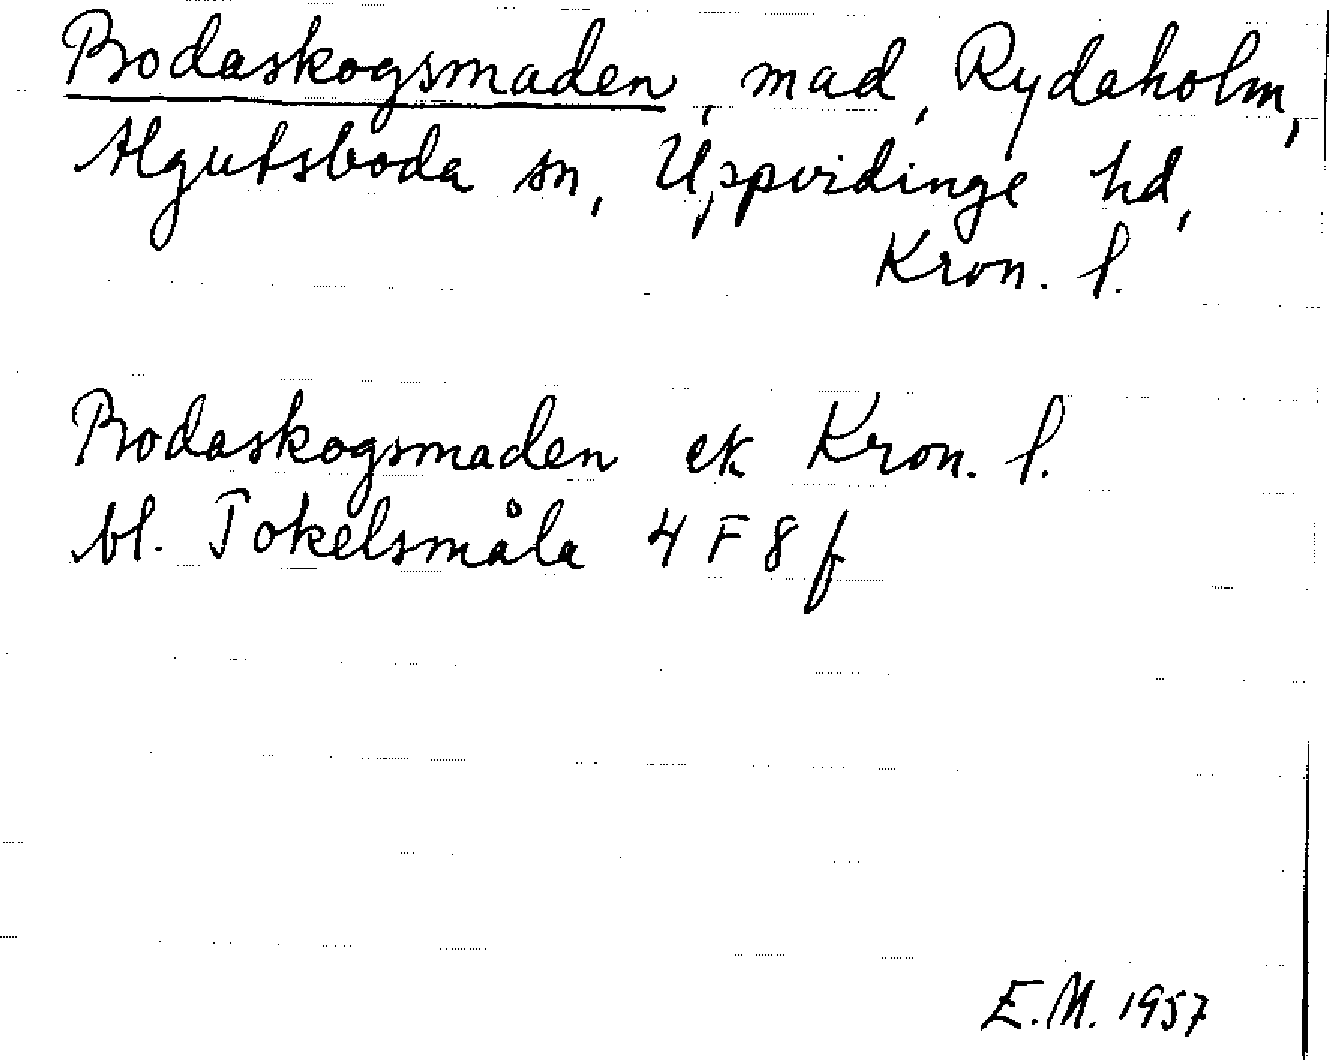 Bodaskogsmaden, mad, Rydaholm,
Algutsboda sn, Uppvidinge hd,
Kron. l.
Bodaskogsmaden ek Kron. l.
bl. Tokelsmåla 4 F 8 f
E.M. 1957